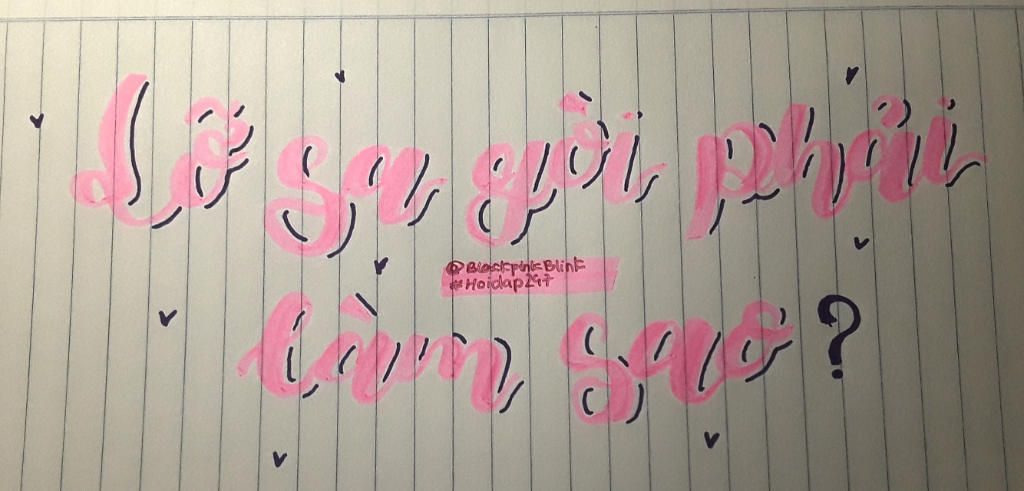 Lỡ sa gồi phải
@BlackpinkBlink
#Hoidap247
làm sao?